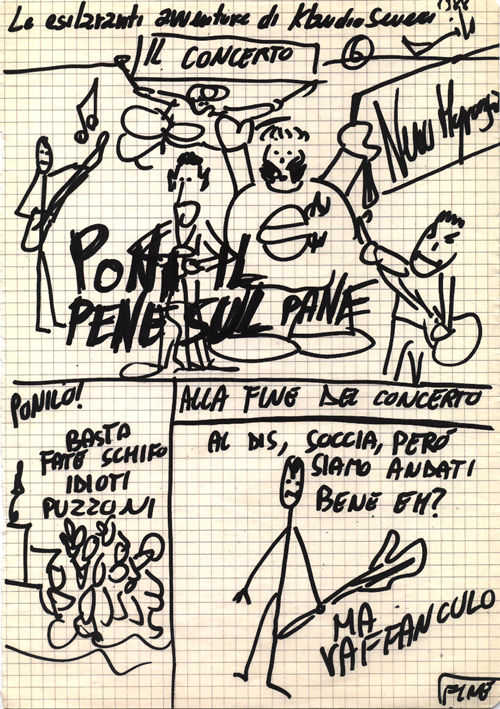 Le esilaranti avventure di Klaudio
1988
IL CONCERTO
6
New
PONI IL
PENE SUL PANE
PONILO!
BASTA
FATE SCHIFO
IDIOTI
PUZZONI
ALLA FINE DEL CONCERTO
AL DIS, SOCCIA, PERÓ
SIAMO ANDATI
BENE EH?
MA
VAFFANCULO
FINE